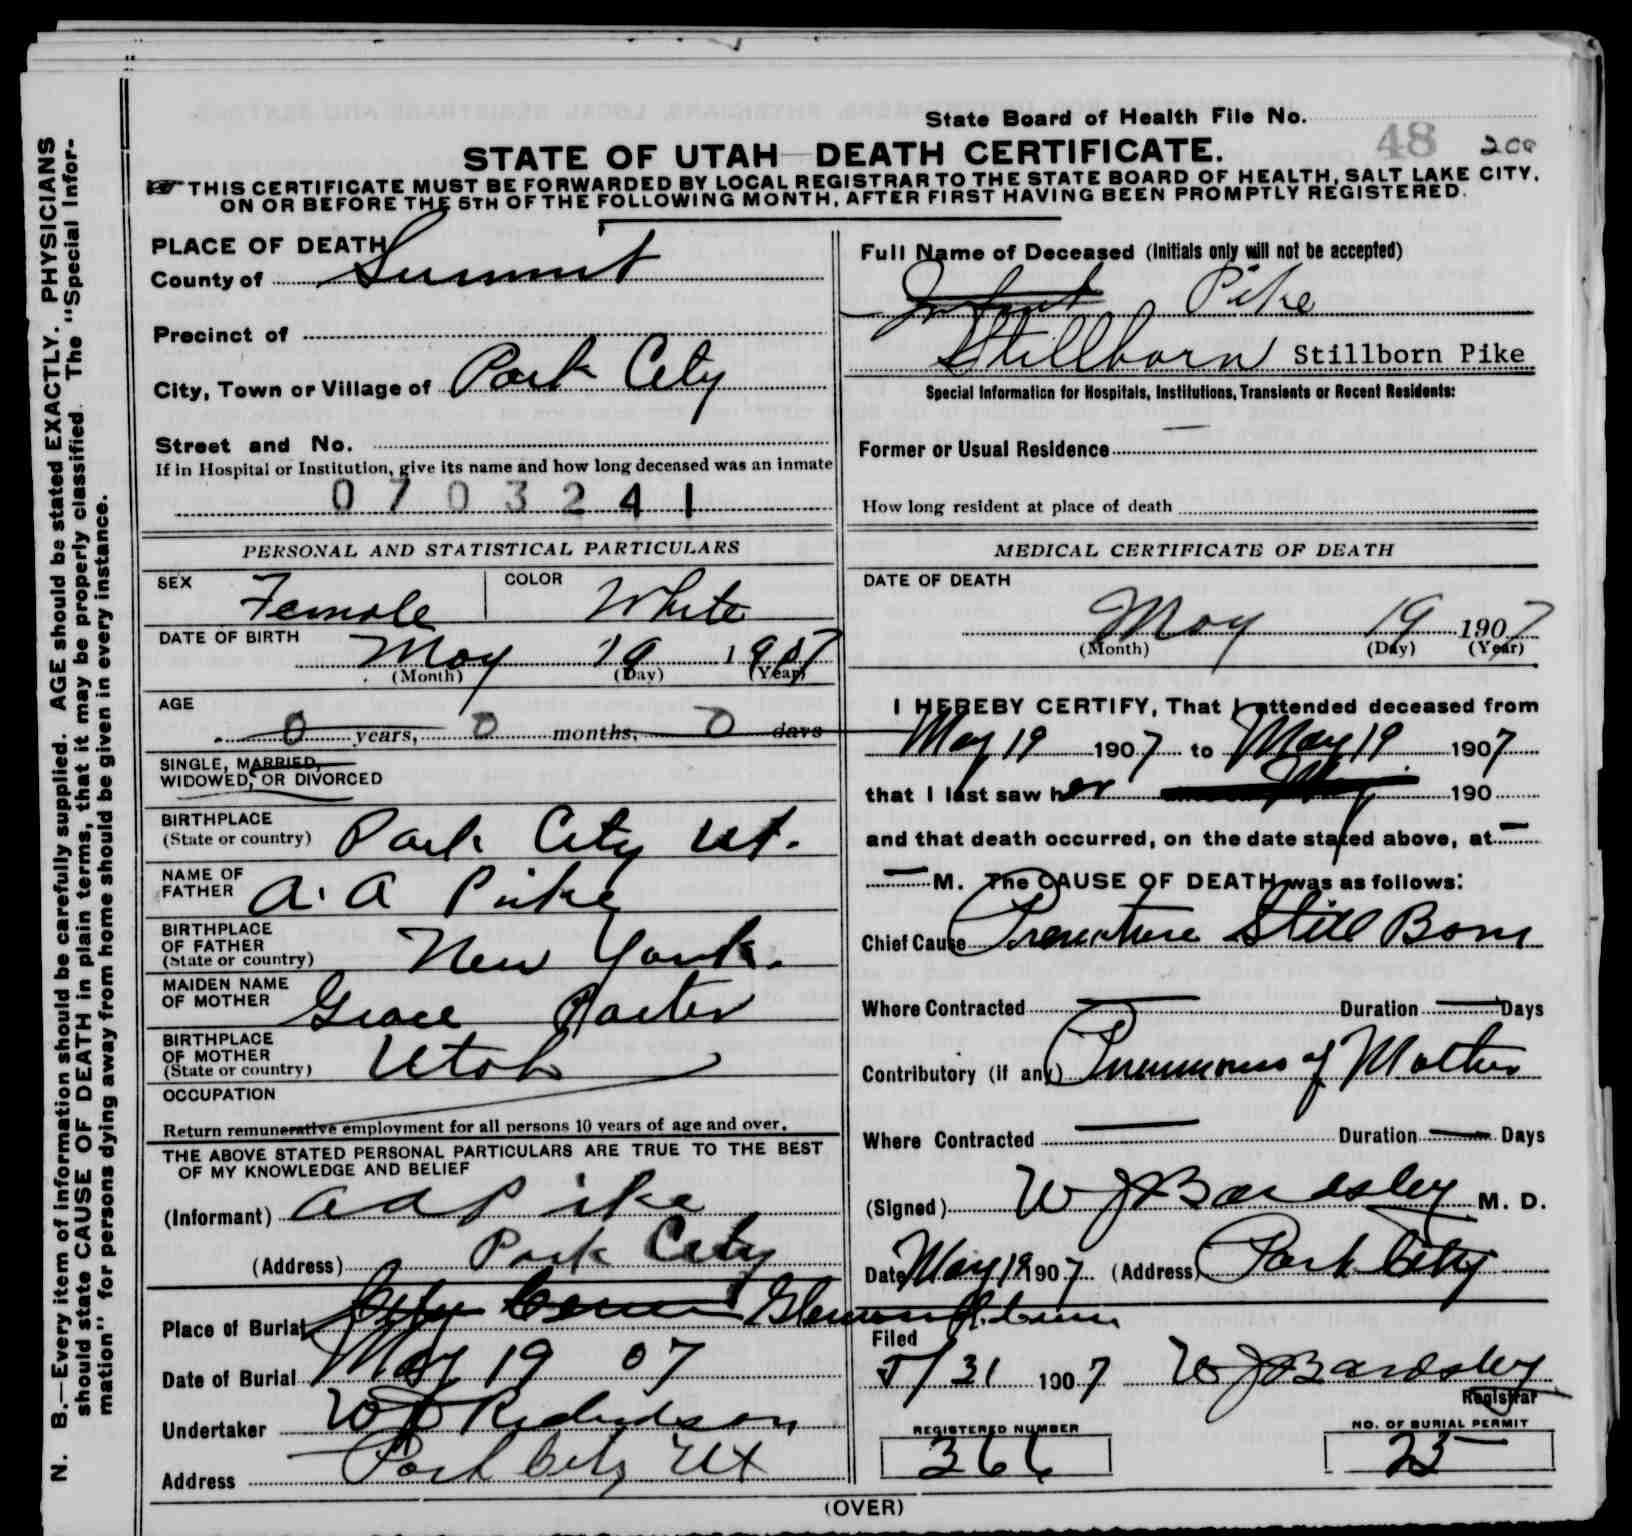 State Board of Health File No. 48 200
STATE OF UTAH—DEATH CERTIFICATE.
THIS CERTIFICATE MUST BE FORWARDED BY LOCAL REGISTRAR TO THE STATE BOARD OF HEALTH, SALT LAKE CITY,
ON OR BEFORE THE 5TH OF THE FOLLOWING MONTH, AFTER FIRST HAVING BEEN PROMPTLY REGISTERED.
N. B.—Every item of information should be carefully supplied. AGE should be stated EXACTLY. PHYSICIANS
should state CAUSE OF DEATH in plain terms, that it may be properly classified. The "Special Infor-
mation" for persons dying away from home should be given in every instance.
PLACE OF DEATH
County of Summit
Precinct of
City, Town or Village of Park City
Street and No.
If in Hospital or Institution, give its name and how long deceased was an inmate
0703241
PERSONAL AND STATISTICAL PARTICULARS
SEX Female COLOR White
DATE OF BIRTH
May 19 1907
(Month) (Day) (Year)
AGE
0 years, 0 months, 0 days
SINGLE, MARRIED,
WIDOWED, OR DIVORCED
BIRTHPLACE
(State or country) Park City Ut.
NAME OF
FATHER A. A Pike
BIRTHPLACE
OF FATHER
(State or country) New York.
MAIDEN NAME
OF MOTHER Grace
BIRTHPLACE
OF MOTHER
(State or country) Utah
OCCUPATION
Return remunerative employment for all persons 10 years of age and over.
THE ABOVE STATED PERSONAL PARTICULARS ARE TRUE TO THE BEST
OF MY KNOWLEDGE AND BELIEF
(Informant) A A Pike
(Address) Park City
Place of Burial City Glenwood
Date of Burial May 19 07
Undertaker Richardson
Address Park City Ut
Full Name of Deceased (Initials only will not be accepted)
Infant Pike
Stillborn Stillborn Pike
Special Information for Hospitals, Institutions, Transients or Recent Residents:
Former or Usual Residence
How long resident at place of death
MEDICAL CERTIFICATE OF DEATH
DATE OF DEATH
May 19 1907
(Month) (Day) (Year)
I HEREBY CERTIFY, That I attended deceased from
May 19 1907 to May 19 1907
that I last saw her 190
and that death occurred, on the date stated above, at —
— M. The CAUSE OF DEATH was as follows:
Chief Cause Premature Still Born
Where Contracted — Duration — Days
Contributory (if any) Pneumonia of Mother
Where Contracted — Duration — Days
(Signed) W J Bardsley M. D.
Date May 19 1907 (Address) Park City
Filed
5/31 1907 W J Bardsley
Registrar
REGISTERED NUMBER
366
NO. OF BURIAL PERMIT
25
(OVER)